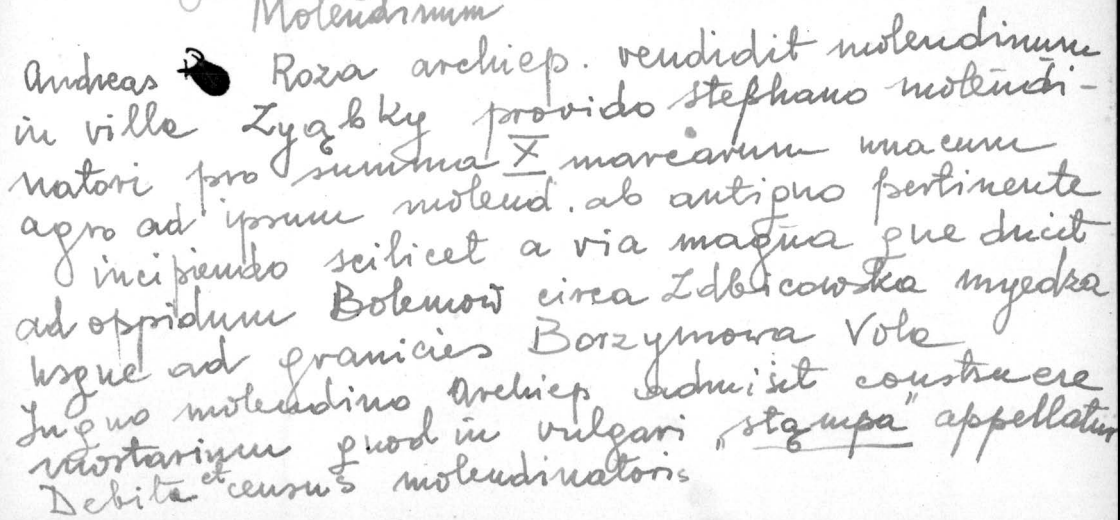 Molendinum
Andreas Roza archiep. vendidit molendinum
in villa Ząbky provido stephano molendi-
natori pro summa X marcarum unacum
agro ad ipsum molend. ab antiquo pertinente
incipiendo scilicet a via magna que ducit
ad oppidum Bolemow circa Zdbicowska myedza
usque ad granicies Borzymowa Vola
In quo molendino Archiep admisit construere
mostarium quod in vulgari „stąmpa" appellatur
Debita et census molendinatoris